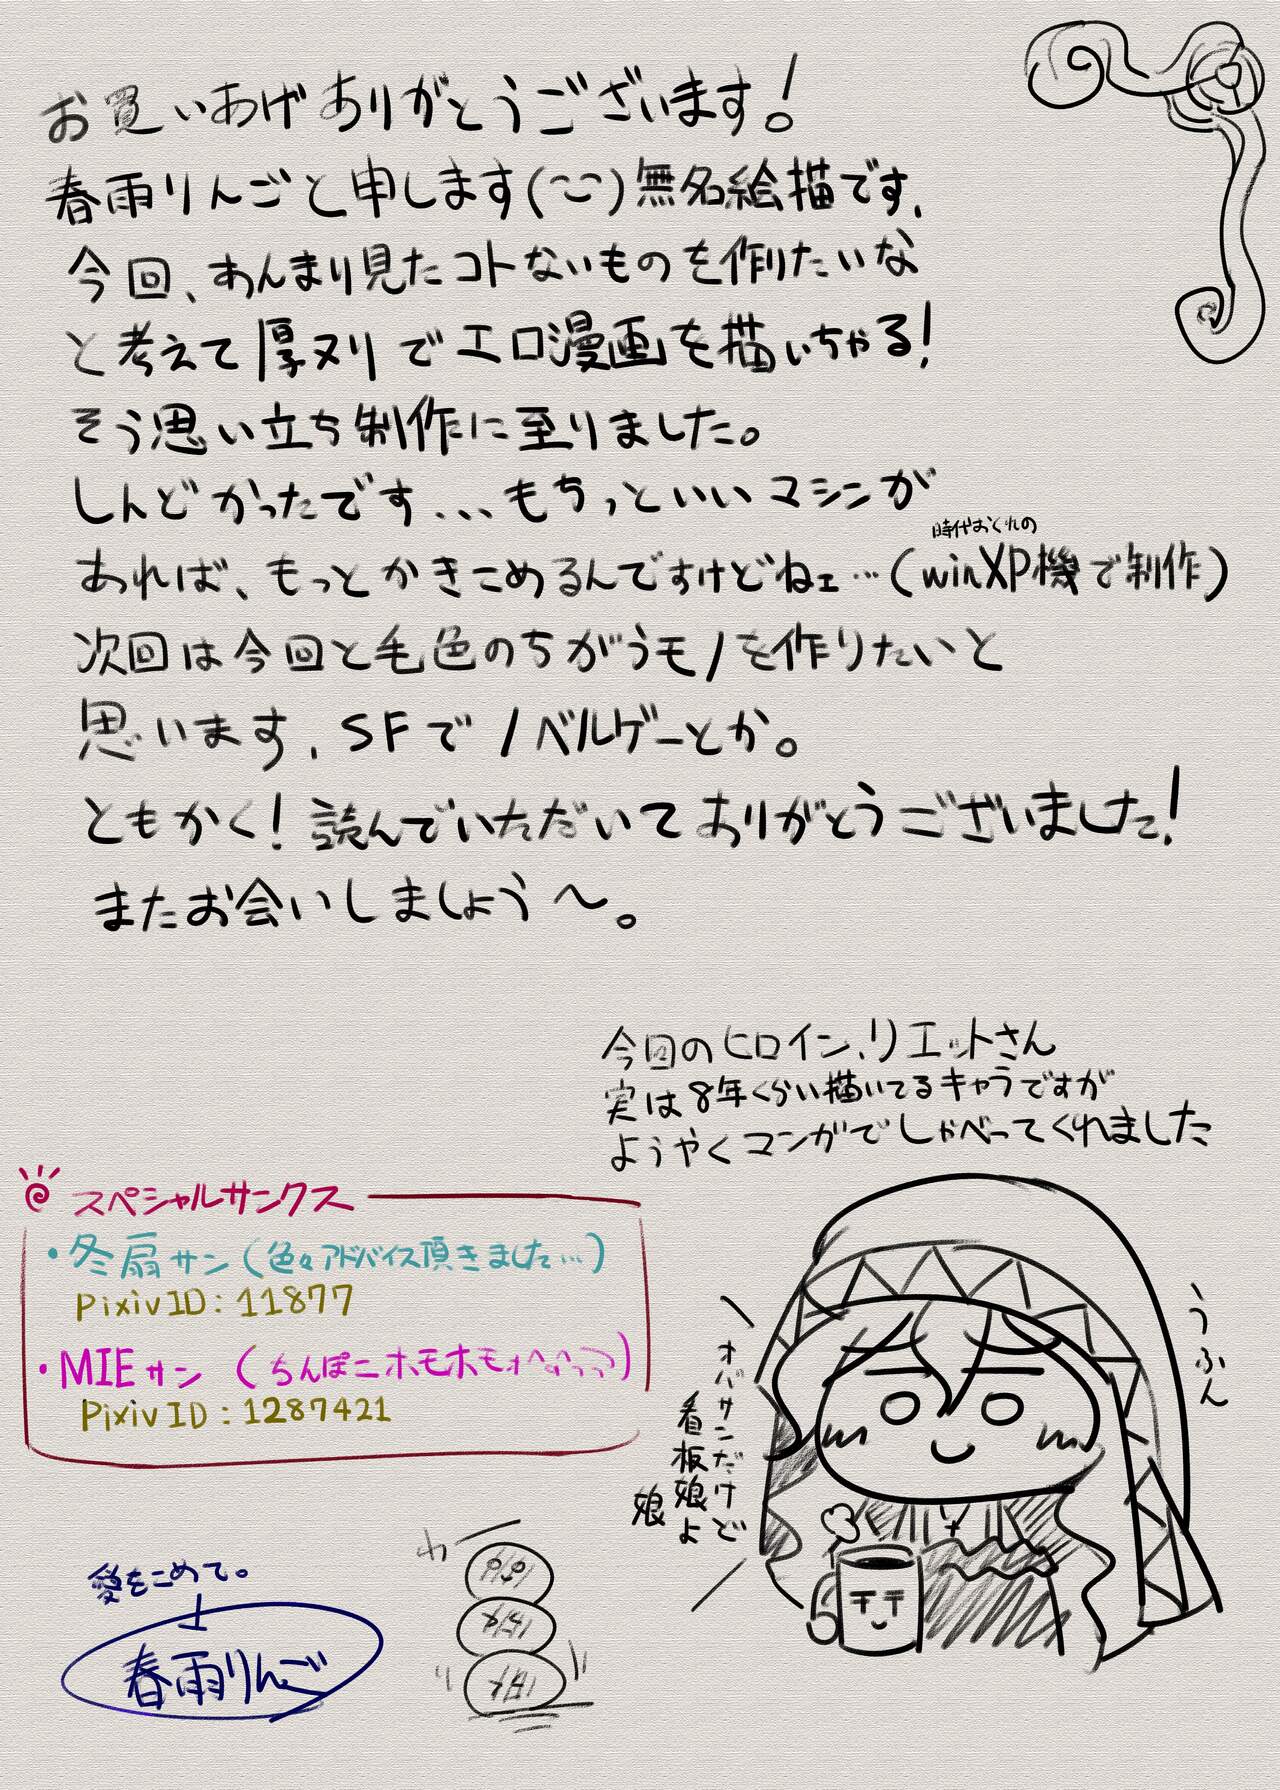 お買いあげありがとうございます!
春雨りんごと申します(^^)無名絵描です、
今回、あんまり見たコトないものを作りたいな
と考えて厚ヌリでエロ漫画を描いちゃる!
そう思い立ち制作に至りました。
しんどかったです...もちっといいマシンが
時代おくれの
あれば、もっとかきこめるんですけどねェ…(winXP機で制作)
次回は今回と毛色のちがうモノを作りたいと
思います、SFでノベルゲーとか。
ともかく!読んでいただいてありがとうございました!
またお会いしましょう〜。
今回のヒロイン、リエットさん
実は8年くらい描いてるキャラですが
ようやくマンガでしゃべってくれました
スペシャルサンクス
・冬扇サン(色々アドバイス頂きました…)
pixivID:11877
・MIEサン(ちんぽこホモホモ
PixivID:1287421
うふん
オバサンだけど
看板娘よ
娘
愛をこめて。
春雨りんご